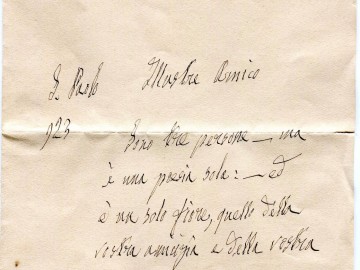 S. Paolo
Illustre Amico
923
Sono tre persone — ma
è una poesia sola: — ed
è un solo fiore, quello della
vostra amicizia e della vostra